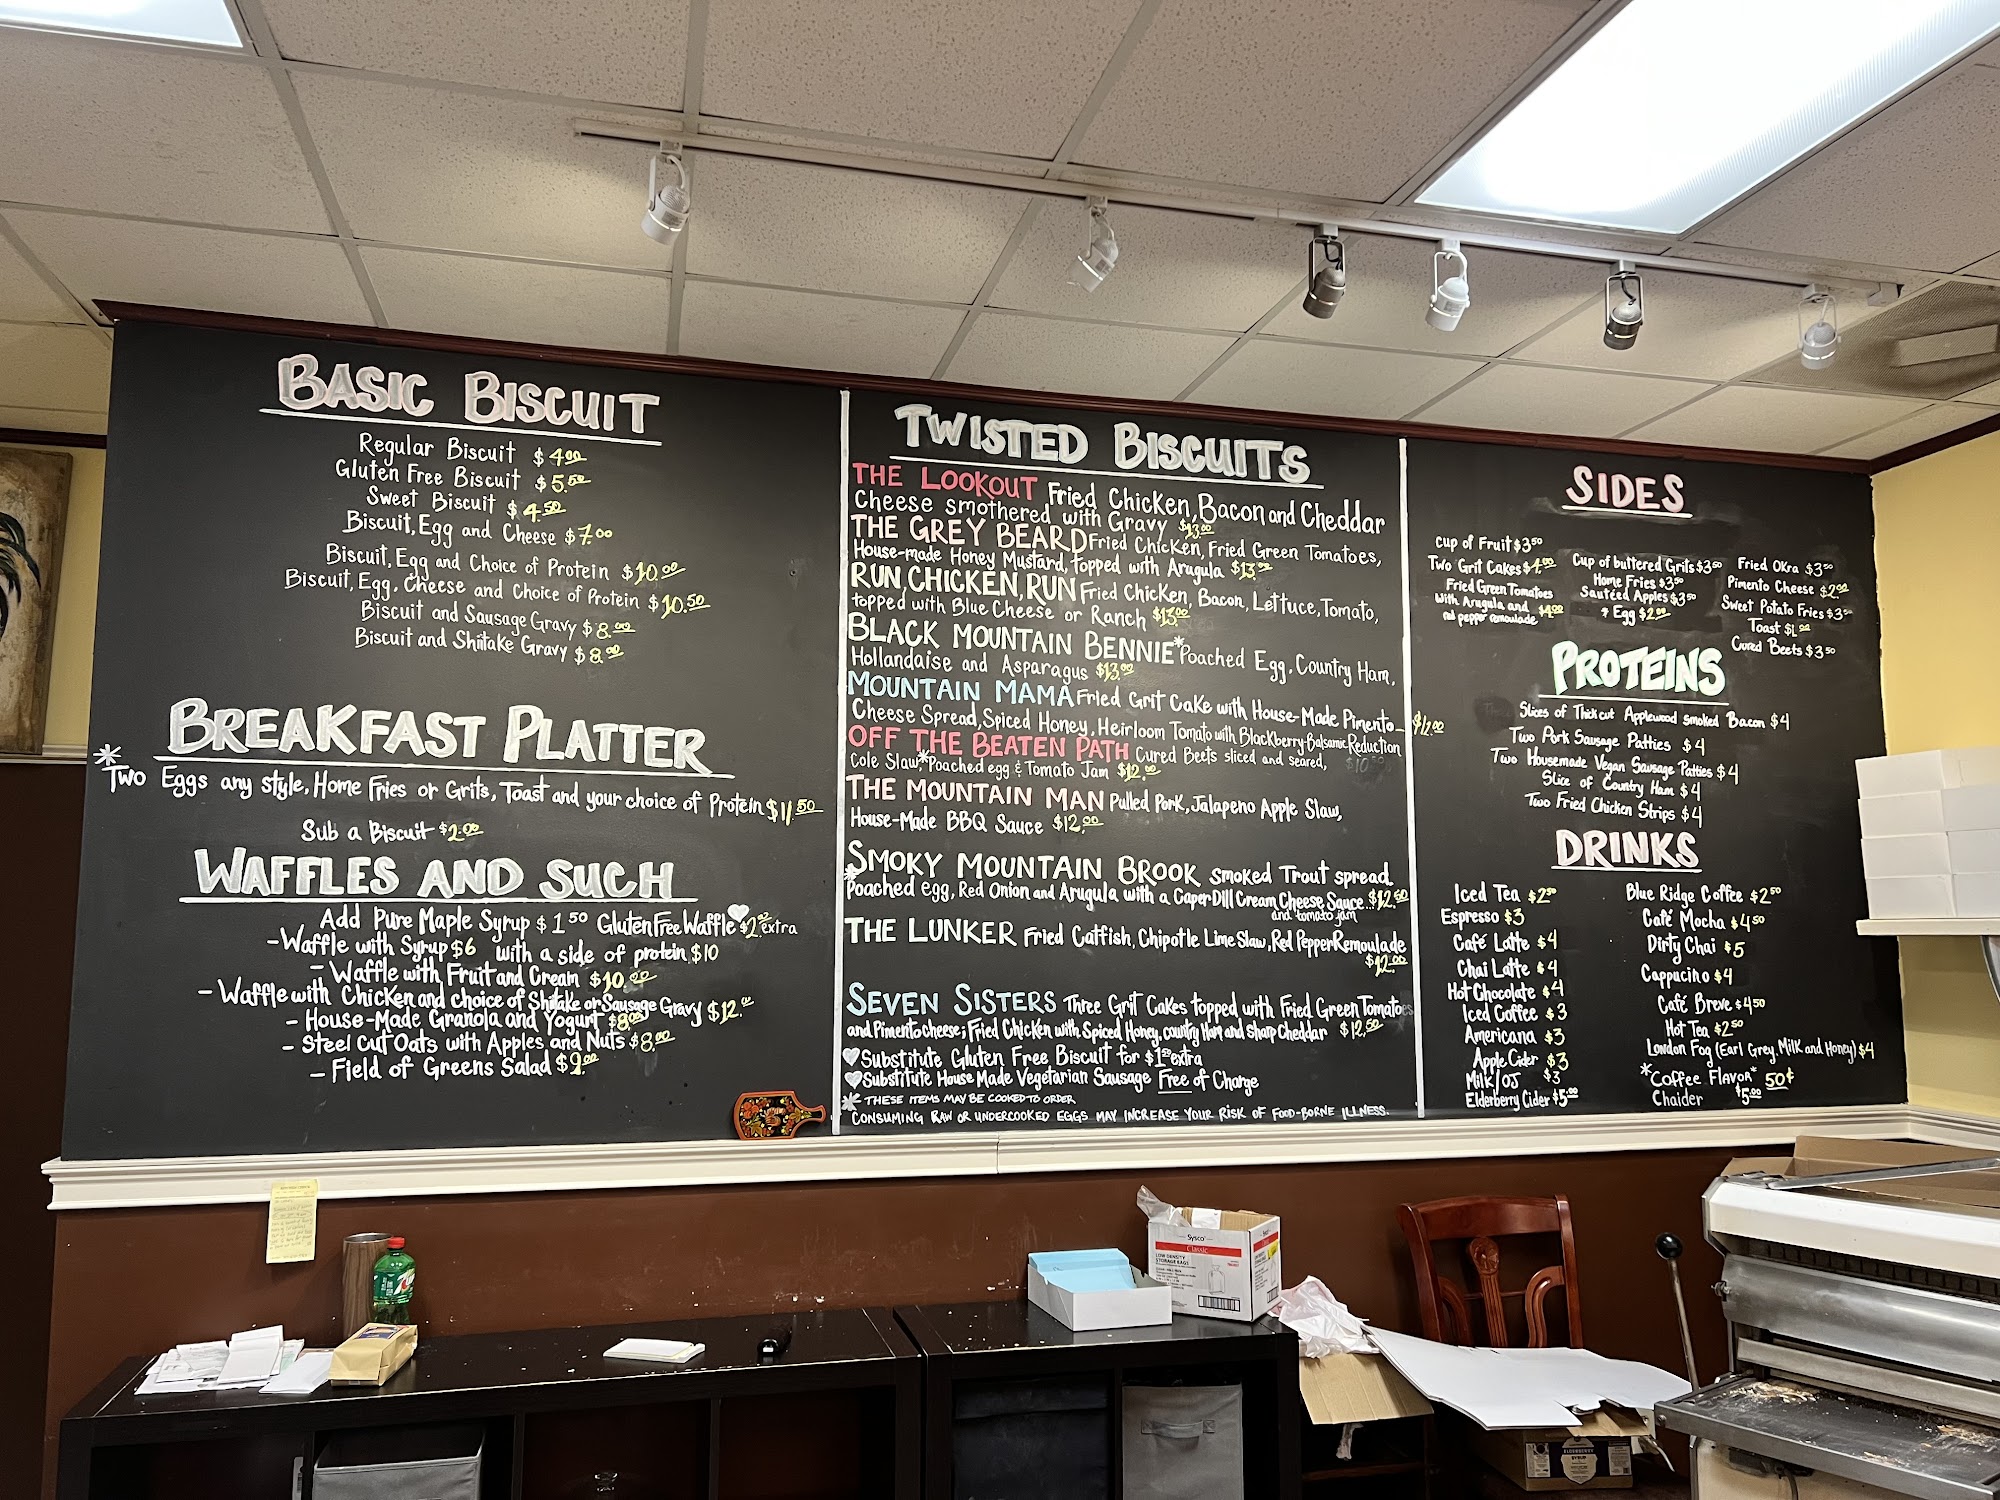 BASIC BISCUIT
Regular Biscuit $4.00
Gluten Free Biscuit $5.50
Sweet Biscuit $4.50
Biscuit, Egg and Cheese $7.00
Biscuit, Egg and Choice of Protein $10.00
Biscuit, Egg, Cheese and Choice of Protein $10.50
Biscuit and Sausage Gravy $8.00
Biscuit and Shiitake Gravy $8.00
BREAKFAST PLATTER
*Two Eggs any style, Home Fries or Grits, Toast and your choice of Protein $11.50
Sub a Biscuit $2.00
WAFFLES AND SUCH
Add Pure Maple Syrup $1.50 Gluten Free Waffle $2.50 extra
-Waffle with Syrup $6 with a side of protein $10
- Waffle with Fruit and Cream $10.00
- Waffle with Chicken and choice of Shiitake or Sausage Gravy $12.00
- House-Made Granola and Yogurt $8.00
- Steel Cut Oats with Apples and Nuts $8.00
- Field of Greens Salad $9.00
TWISTED BISCUITS
THE LOOKOUT Fried Chicken, Bacon and Cheddar
Cheese smothered with Gravy $13.00
THE GREY BEARD Fried Chicken, Fried Green Tomatoes,
House-made Honey Mustard, topped with Arugula $13.00
RUN, CHICKEN, RUN Fried Chicken, Bacon, Lettuce, Tomato,
topped with Blue Cheese or Ranch $13.00
BLACK MOUNTAIN BENNIE* Poached Egg, Country Ham,
Hollandaise and Asparagus $13.00
MOUNTAIN MAMA Fried Grit Cake with House-Made Pimento
Cheese Spread, Spiced Honey, Heirloom Tomato with Blackberry-Balsamic Reduction $12.00
OFF THE BEATEN PATH Cured Beets sliced and seared,
Cole Slaw, *Poached egg & Tomato Jam $12.00
THE MOUNTAIN MAN Pulled Pork, Jalapeno Apple Slaw,
House-Made BBQ Sauce $12.00
SMOKY MOUNTAIN BROOK Smoked Trout spread
*Poached egg, Red Onion and Arugula with a Caper-Dill Cream Cheese Sauce $12.50
and tomato jam
THE LUNKER Fried Catfish, Chipotle Lime Slaw, Red Pepper Remoulade
$12.00
SEVEN SISTERS Three Grit Cakes topped with Fried Green Tomatoes
and Pimento cheese; Fried Chicken with Spiced Honey, country Ham and sharp Cheddar $12.50
Substitute Gluten Free Biscuit for $1.50 extra
Substitute House Made Vegetarian Sausage Free of Charge
* THESE ITEMS MAY BE COOKED TO ORDER
CONSUMING RAW OR UNDERCOOKED EGGS MAY INCREASE YOUR RISK OF FOOD-BORNE ILLNESS.
SIDES
Cup of Fruit $3.50
Two Grit Cakes $4.00
Fried Green Tomatoes
With Arugula and $4.00
red pepper remoulade
Cup of buttered Grits $3.50
Home Fries $3.50
Sautéed Apples $3.50
+ Egg $2.00
Fried Okra $3.50
Pimento Cheese $2.00
Sweet Potato Fries $3.50
Toast $1.00
Cured Beets $3.50
PROTEINS
Slices of Thick cut Applewood smoked Bacon $4
Two Pork Sausage Patties $4
Two Housemade Vegan Sausage Patties $4
Slice of Country Ham $4
Two Fried Chicken Strips $4
DRINKS
Iced Tea $2.50
Espresso $3
Café Latte $4
Chai Latte $4
Hot Chocolate $4
Iced Coffee $3
Americana $3
Apple Cider $3
Milk/OJ $3
Elderberry Cider $5.00
Blue Ridge Coffee $2.50
Café Mocha $4.50
Dirty Chai $5
Cappucino $4
Café Breve $4.50
Hot Tea $2.50
London Fog (Earl Grey, Milk and Honey) $4
*Coffee Flavor* 50¢
Chaider $5.00
Sysco
Classic
LOW DENSITY
STORAGE BAGS